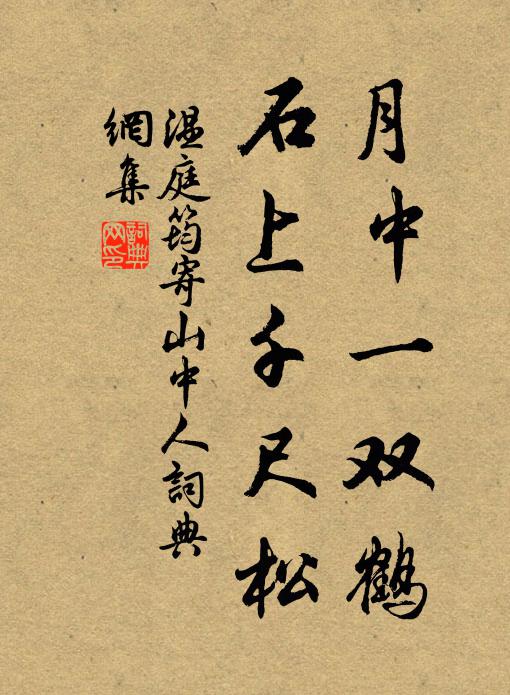 月中一双鹤
石上千尺松
温庭筠寄山中人詞典
網集
詞典
网印